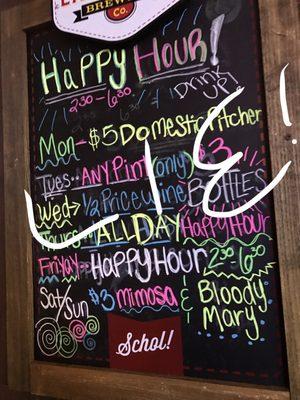 BREWING
Co.
Happy Hour!
2:30 - 6:30
Drink Up!
Mon - $5 Domestic Pitcher
Tues - Any Pint (only) $3
Wed → 1/2 Price wine Bottles
Thurs - All Day Happy Hour
Friyay - Happy Hour 2:30-6:30
Sat/Sun $3 mimosa & Bloody Mary
LIE!
Schol!